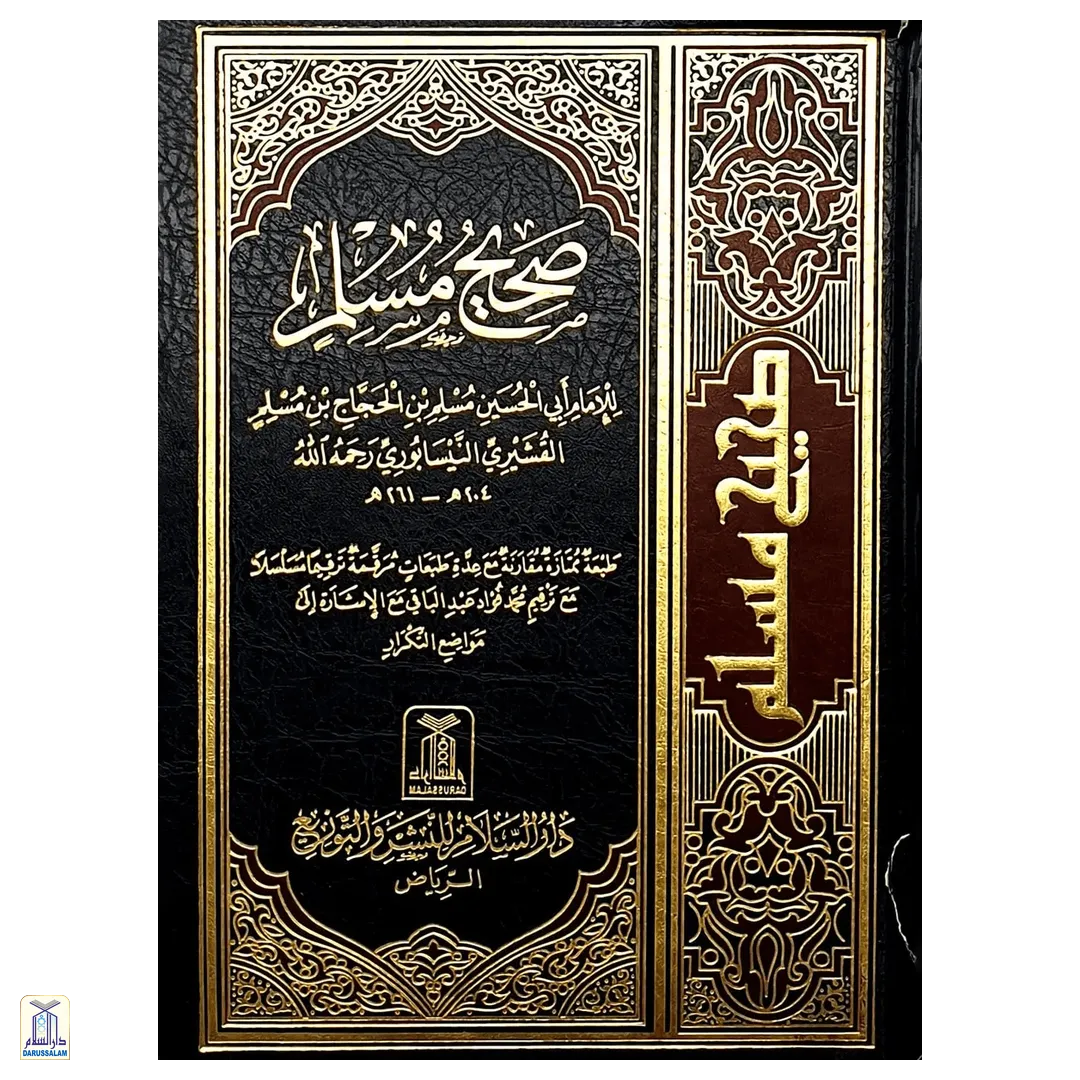 صَحِيحُ مُسْلِمٍ
لِلْإِمَامِ أَبِي الْحُسَيْنِ مُسْلِمِ بْنِ الْحَجَّاجِ بْنِ مُسْلِمٍ
القُشَيْرِيِّ النَّيْسَابُورِيِّ رَحِمَهُ اللهُ
٢٠٤هـ – ٢٦١هـ
طَبْعَةٌ مُمْتَازَةٌ مُقَارَنَةٌ مَعَ عِدَّةِ طَبَعَاتٍ مُرَقَّمَةٌ تَرْقِيمًا مُسَلْسَلًا
مَعَ تَرْقِيمِ مُحَمَّد فُؤَاد عَبْدِ البَاقِي مَعَ الْإِشَارَةِ إِلَى
مَوَاضِعِ التَّكْرَارِ
دارالسلام
DARUSSALAM
دَارُ السَّلَامِ لِلنَّشْرِ وَالتَّوْزِيعِ
الرِّيَاض
صحيح مسلم
دارالسلام
DARUSSALAM